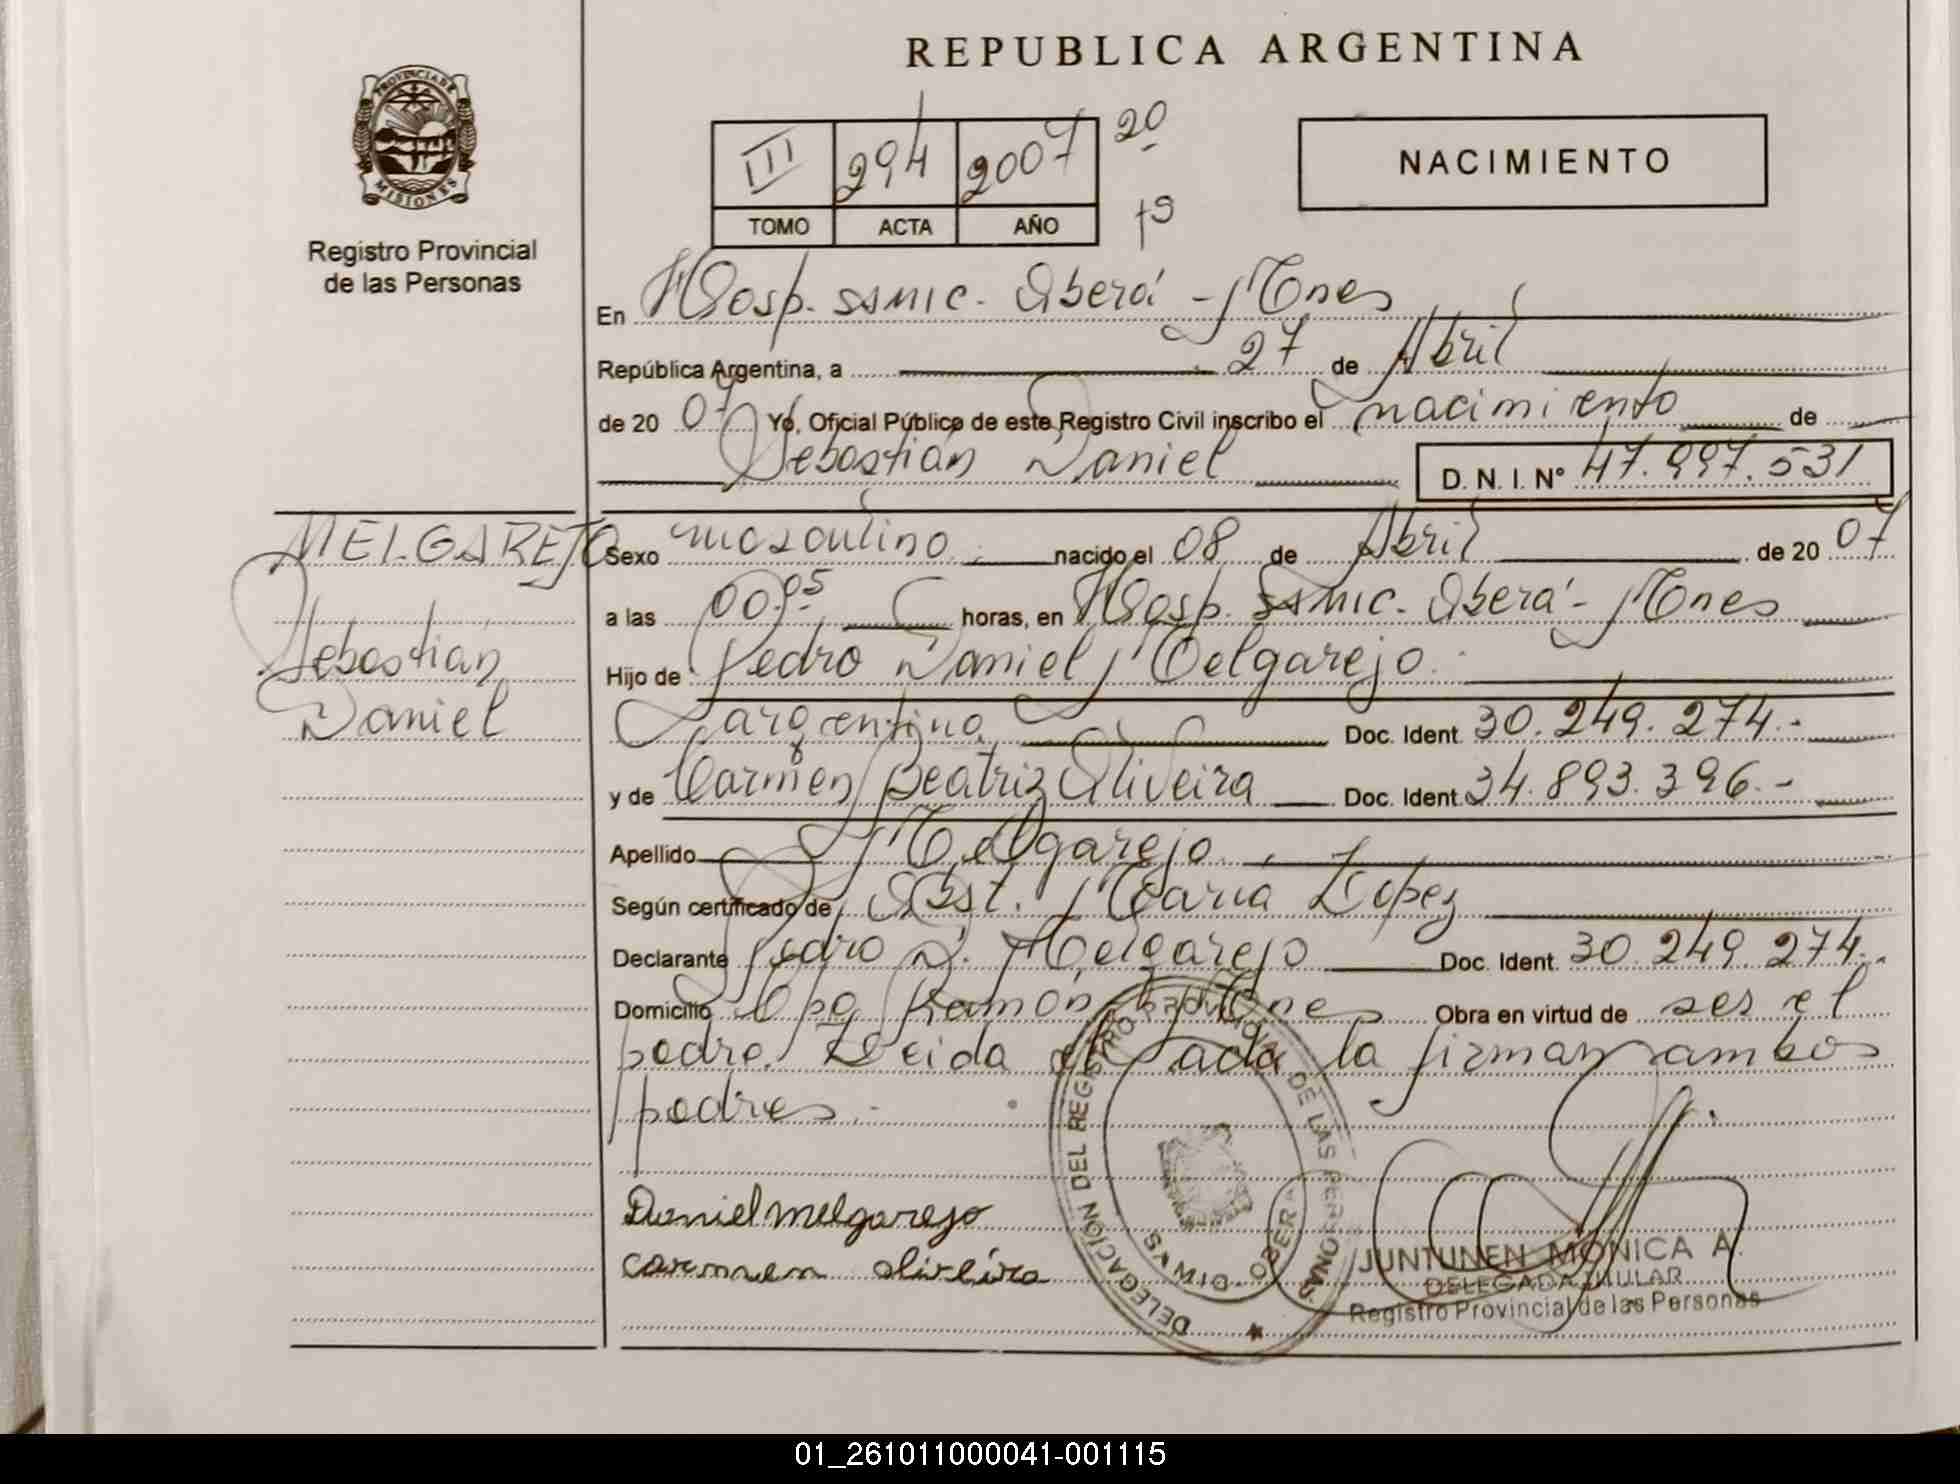 REPUBLICA ARGENTINA
PROVINCIA DE MISIONES
Registro Provincial
de las Personas
III 294 2007 20
TOMO ACTA AÑO
NACIMIENTO
En Hosp. SSMIC. Oberá - Mnes
República Argentina, a 27 de Abril
de 20 07 Yo, Oficial Público de este Registro Civil inscribo el nacimiento de
Sebastián Daniel D. N. I. Nº 47.997.531
MELGAREJO
Sebastián
Daniel
Sexo masculino nacido el 08 de Abril de 20 07
a las 00,05 horas, en Hosp. SSMIC. Oberá - Mnes
Hijo de Pedro Daniel Melgarejo.
argentino Doc. Ident. 30.249.274.-
y de Carmen Beatriz Oliveira Doc. Ident. 34.893.396.-
Apellido Melgarejo.
Según certificado de Obst. María López
Declarante Pedro D. Melgarejo Doc. Ident. 30.249.274.
Domicilio Cpo Ramón Mnes Obra en virtud de ser el
padre. Leida el acta la firman ambos
padres.-
Daniel Melgarejo
carmen oliveira
DELEGACIÓN DEL REGISTRO PROVINCIAL DE LAS PERSONAS
OBERA
JUNTUNEN MONICA A.
DELEGADA TITULAR
Registro Provincial de las Personas
01_261011000041-001115